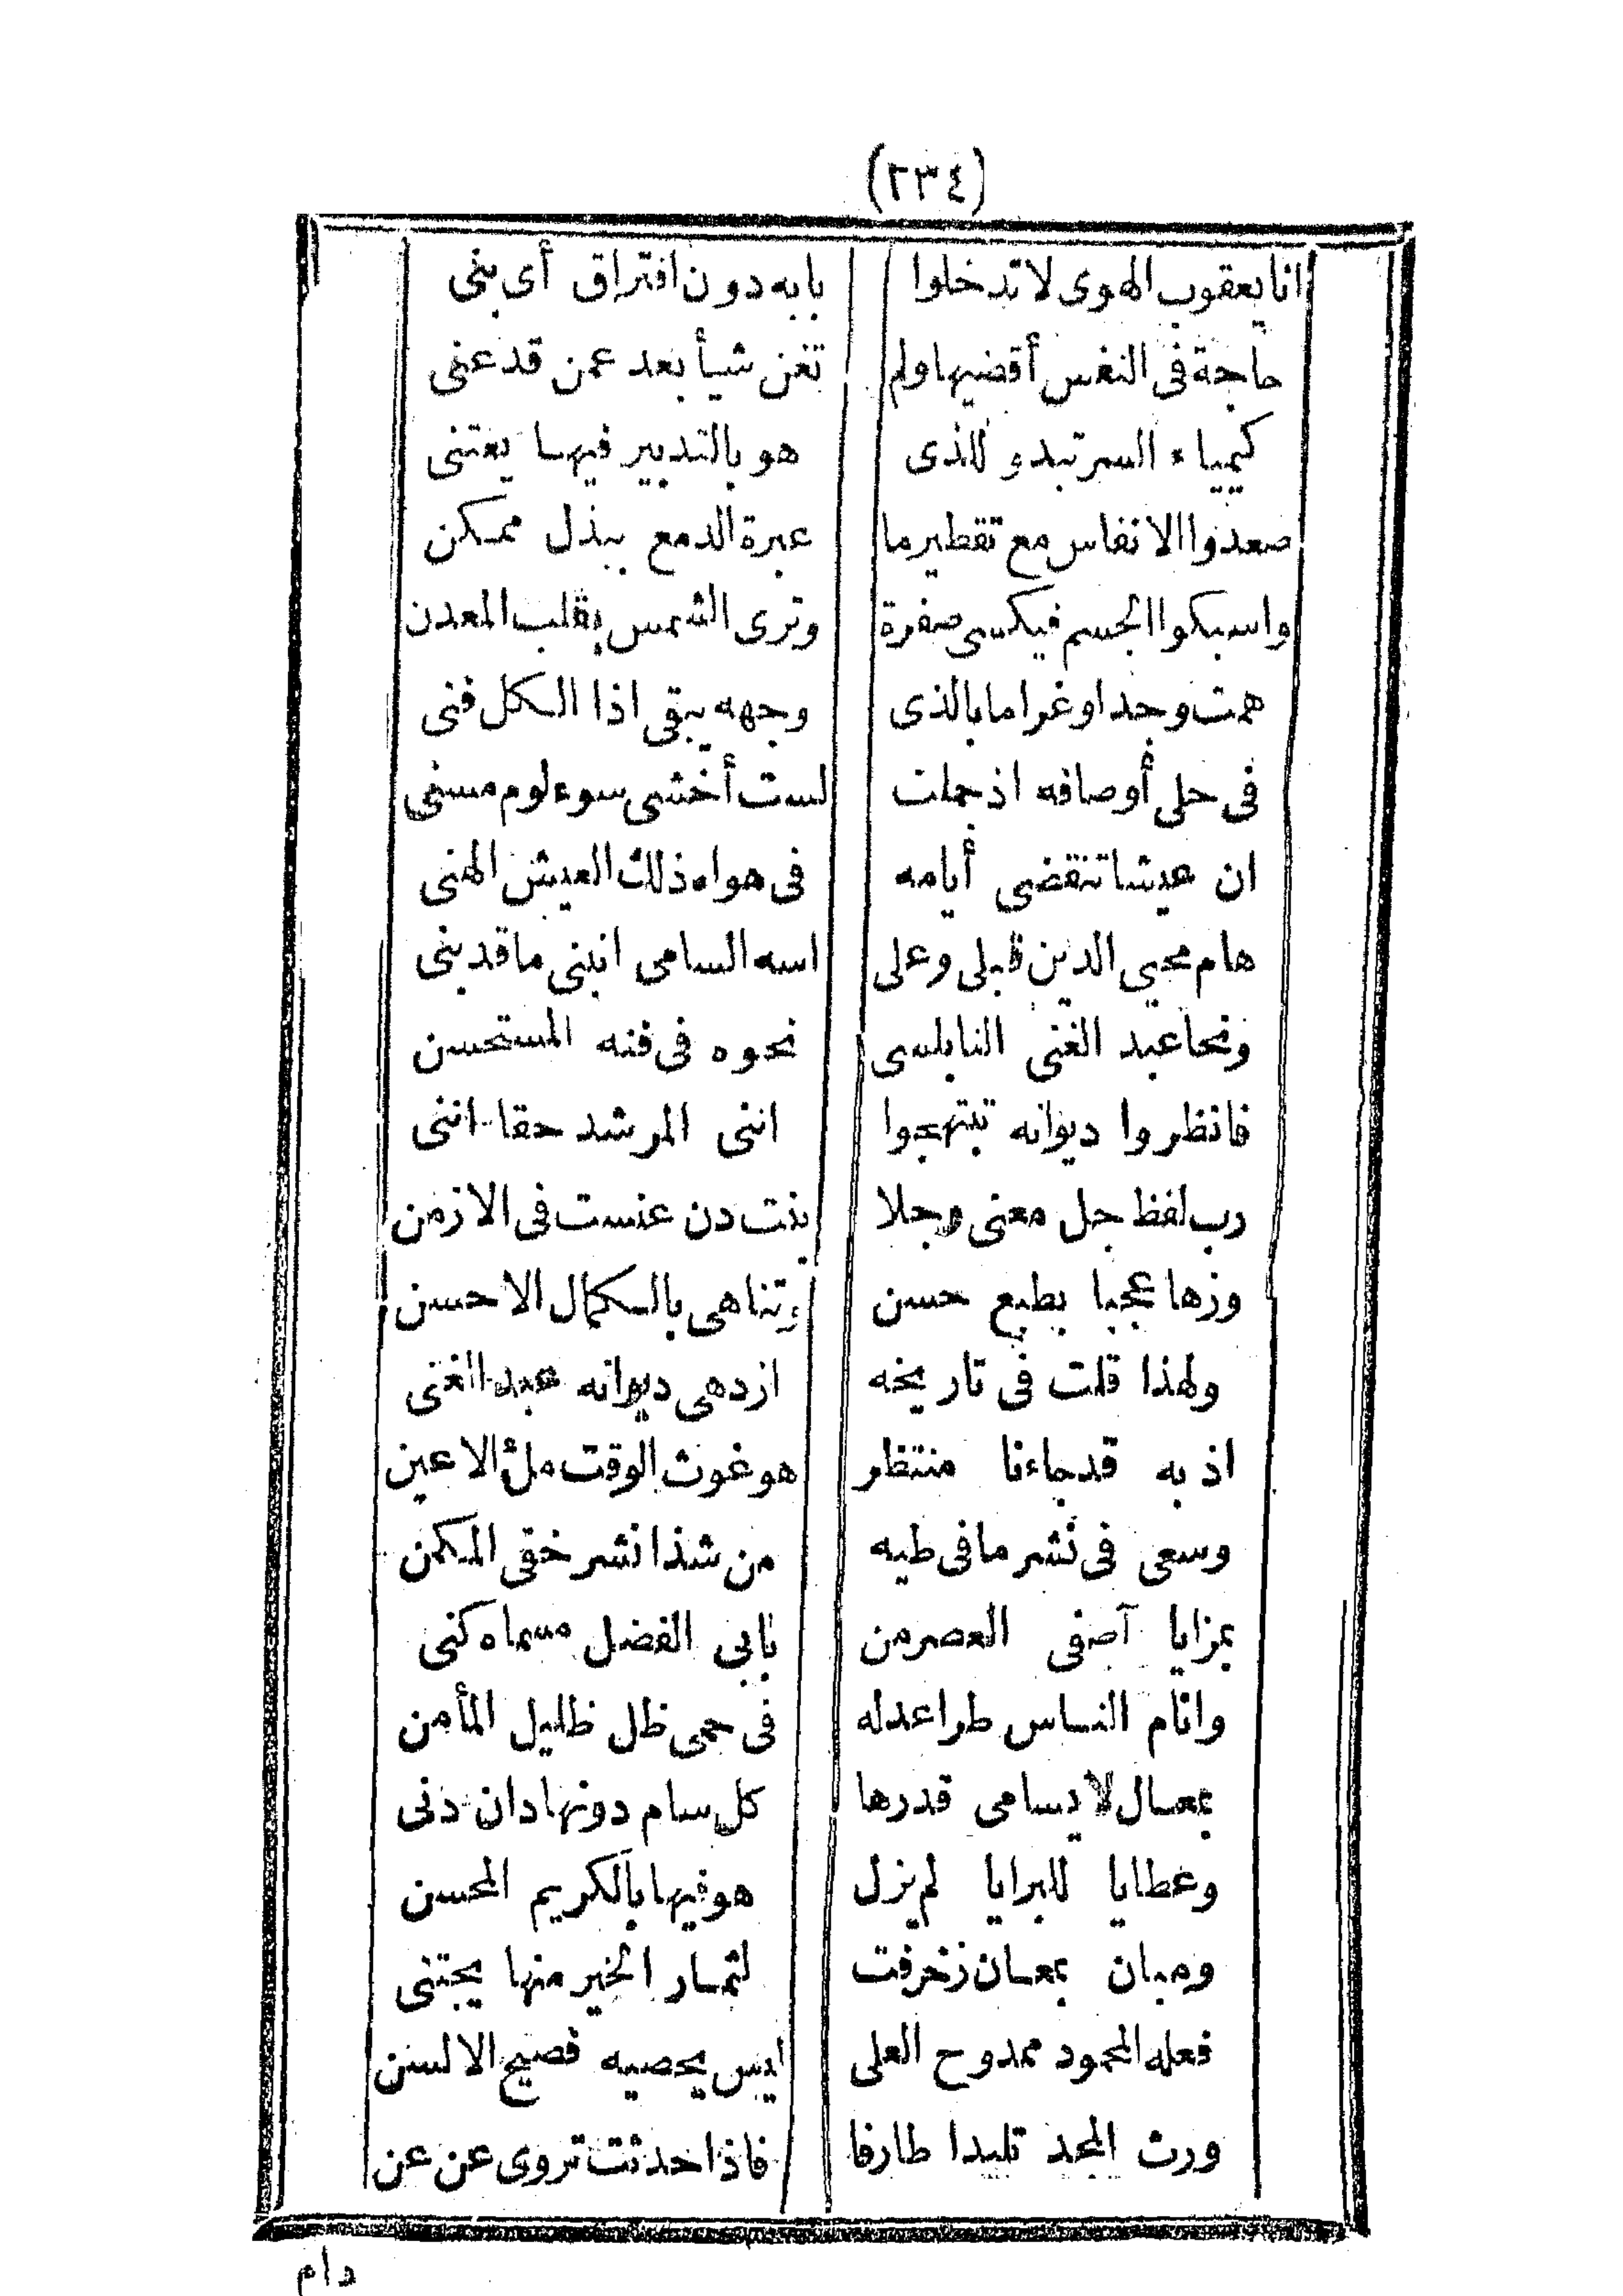 (٢٣٤)
انا يعقوب الهوى لا تدخلوا بابه دون افتراق أى بنى
حاجة فى النفس أقضيها ولم تغن شيأ بعد عمن قد عنى
كيمياء السر تبدو للذى هو بالتدبير فيها يعتنى
صعدوا الانفاس مع تقطير ما عبرة الدمع ببذل ممكن
واسبكوا الجسم فيكسى صفرة وترى الشمس بقلب المعدن
همت وجدا وغراما بالذى وجهه يبقى اذا الكل فنى
فى حلى أوصافه اذ جملت لست أخشى سوء لوم مسنى
ان عيشا تنقضى أيامه فى هواه ذلك العيش الهنى
هام محيي الدين قبلى وعلى اسه السامى انبنى ما قد بنى
ونحا عبد الغنى النابلسى نحوه فى فنه المستحسن
فانظروا ديوانه تبتهجوا اننى المرشد حقا اننى
رب لفظ جل معنى وجلا بنت دن عنست فى الازمن
وزها عجبا بطبع حسن وتناهى بالكمال الاحسن
ولهذا قلت فى تاريخه ازدهى ديوانه عبد الغنى
اذ به قد جاءنا منتظر هو غوث الوقت ملئ الاعين
وسعى فى نشر ما فى طيه من شذا نشر خفى المكمن
بمزايا آصفى العصر من بابى الفضل مسماه كنى
وانام الناس طرا عدله فى حمى ظل ظليل المأمن
بمعال لا يسامى قدرها كل سام دونها دان دنى
وعطايا للبرايا لم يزل هو فيها بالكريم المحسن
ومبان بمعان زخرفت لثمار الخير منها يجتنى
فعله المحمود ممدوح العلى ليس يحصيه فصيح الالسن
ورث المجد تليدا طارفا فاذا حدثت تروى عن عن
دام